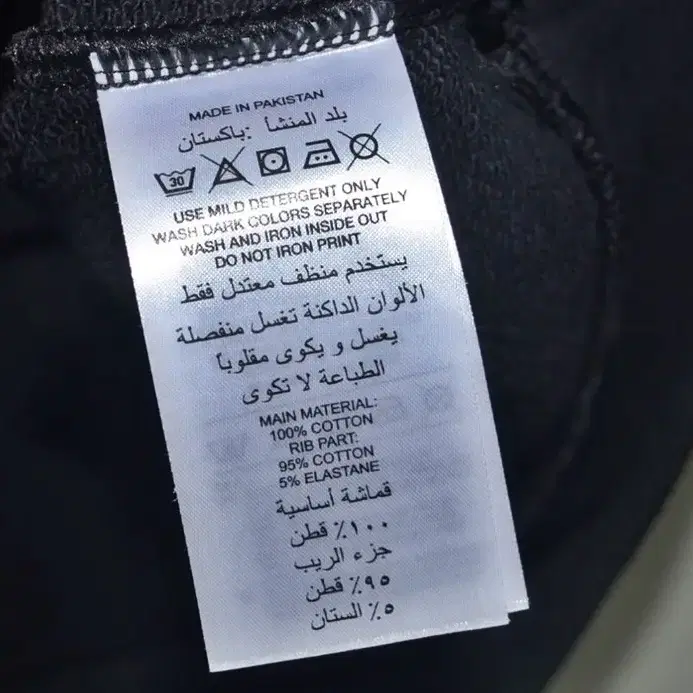 MADE IN PAKISTAN
بلد المنشأ :باكستان
30
USE MILD DETERGENT ONLY
WASH DARK COLORS SEPARATELY
WASH AND IRON INSIDE OUT
DO NOT IRON PRINT
يستخدم منظف معتدل فقط
الألوان الداكنة تغسل منفصلة
يغسل و يكوى مقلوباً
الطباعة لا تكوى
MAIN MATERIAL:
100% COTTON
RIB PART:
95% COTTON
5% ELASTANE
قماشة أساسية
١٠٠٪ قطن
جزء الريب
٩٥٪ قطن
٥٪ الستان